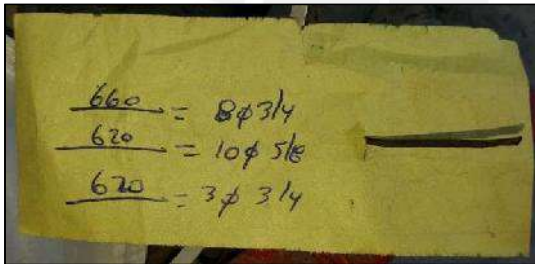 660 = 8ϕ3/4
620 = 10ϕ 5/8
620 = 3ϕ 3/4